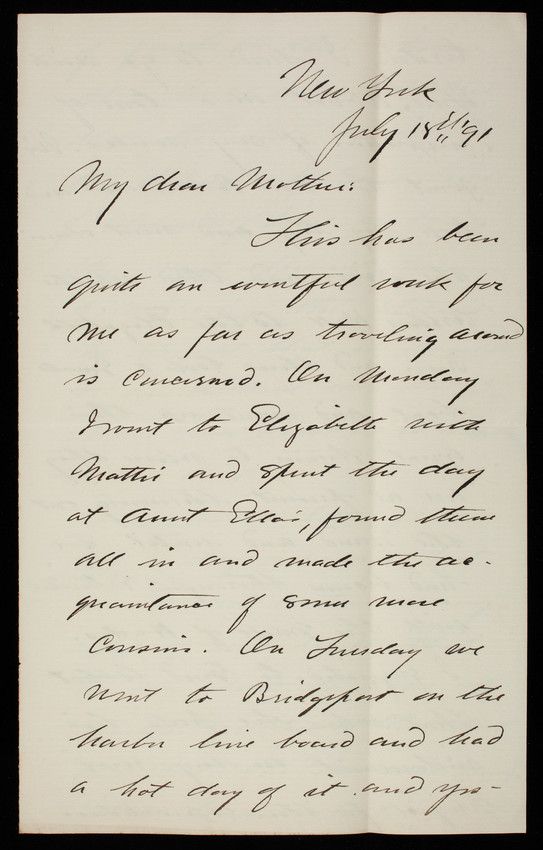 New York
July 18th '91
My dear Mother:
This has been
quite an eventful week for
me as far as traveling around
is concerned. On Monday
I went to Elizabeth with
Mattie and spent the day
at Aunt Ella's, found them
all in and made the ac-
quaintance of some more
Cousins. On Tuesday we
went to Bridgeport on the
harbor line board and had
a hot day of it and yes-